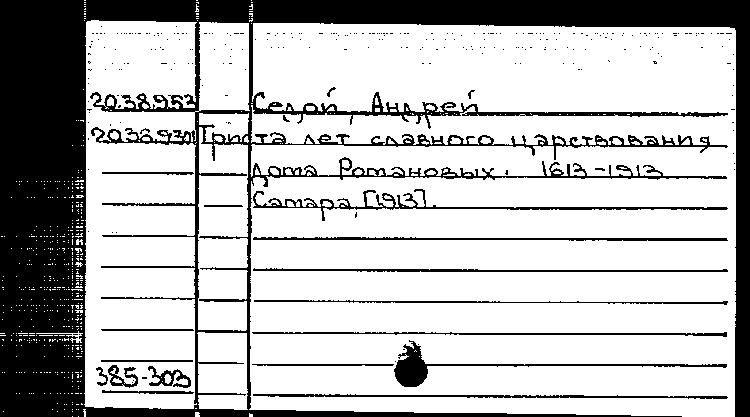 20.38.9.52 Седой, Андрей
20.38.9.301 Триста лет славного царствования
Дома Романовых. 1613-1913
Самара, [1913].
385-303